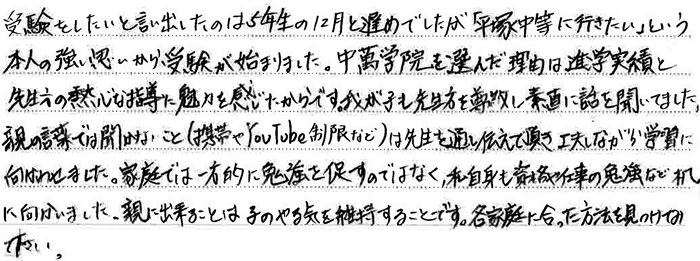 受験をしたいと言い出したのは5年生の12月と遅めでしたが「平塚中等に行きたい」という
本人の強い思いから受験が始まりました。中萬学院を選んだ理由は進学実績と
先生方の熱心な指導に魅力を感じたからです。我が子も先生方を尊敬し素直に話を聞いてました。
親の言葉では聞かないこと(携帯やYouTube制限など)は先生を通し伝えて頂き工夫しながら学習に
向かわせました。家庭では一方的に勉強を促すのではなく、私自身も資格や仕事の勉強など机
に向かいました。親に出来ることは子のやる気を維持することです。各家庭に合った方法を見つけな
下さい。